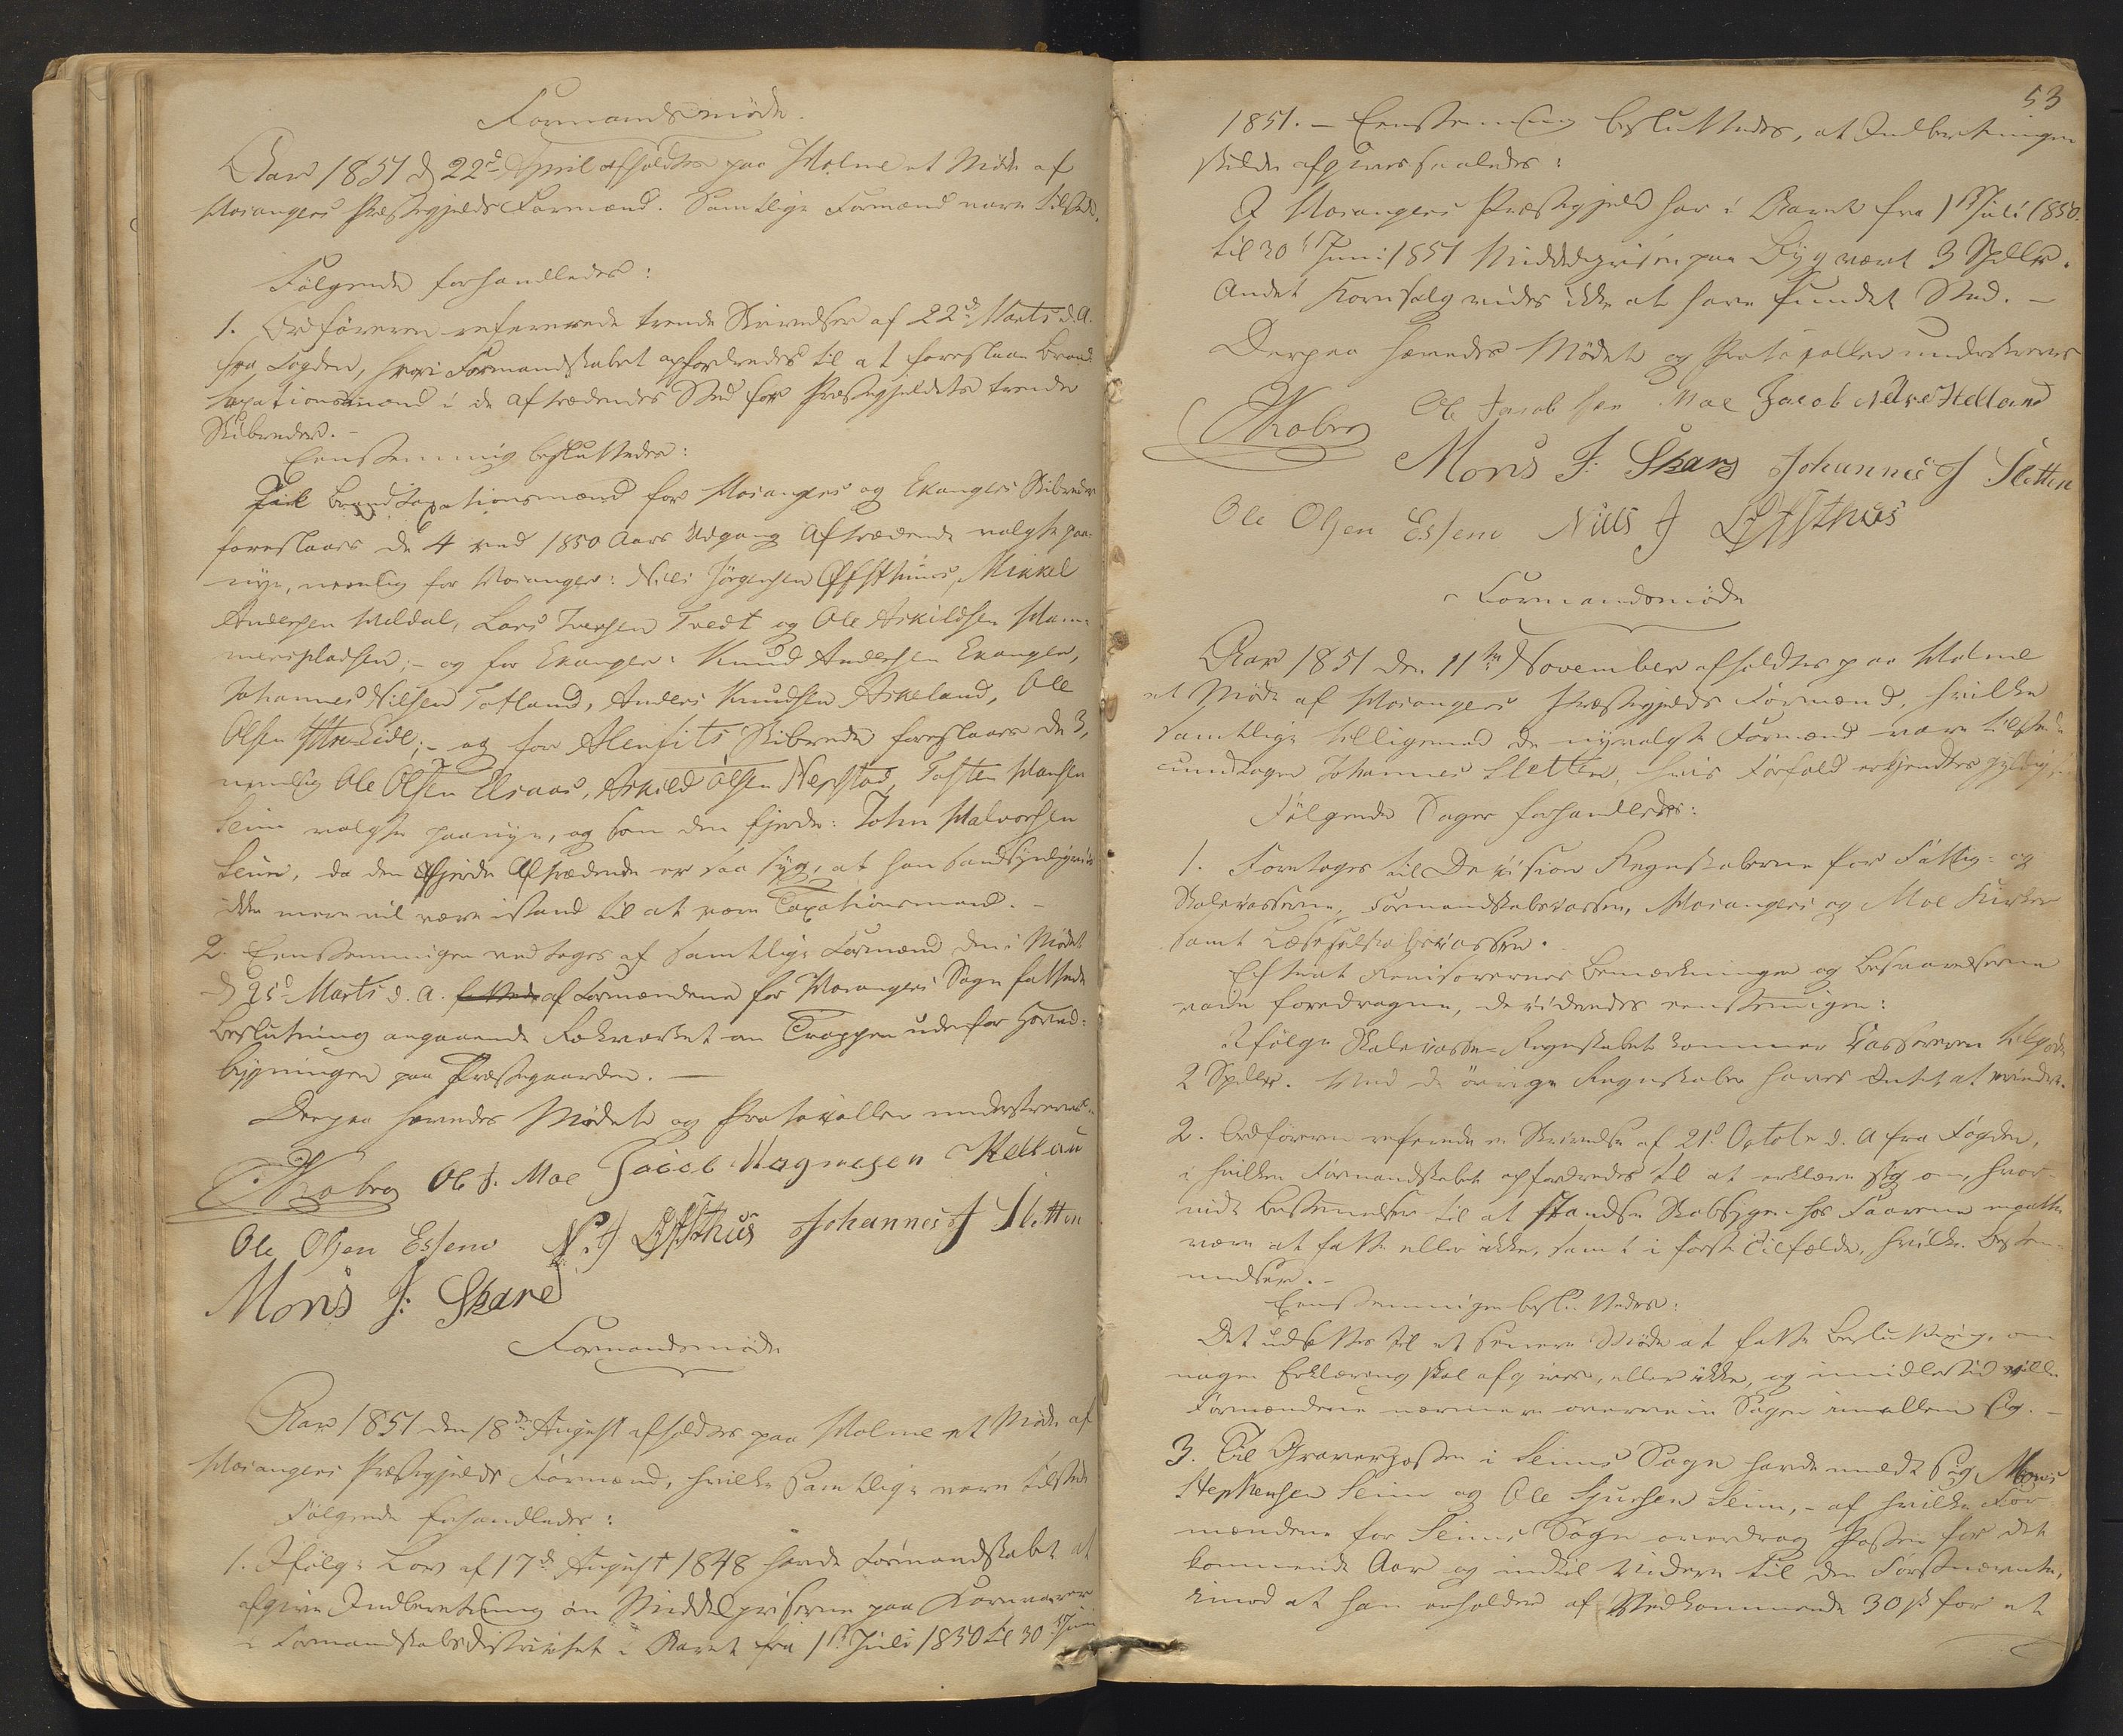 Formandsmöde.
Aar 1851 d 22d April afholdtes paa Holme et Möde af
Hosangers Præstegjelds Formænd. Samtlige Formænd vare tilstede.
Fölgende forhandledes:
1. Ordföreren refererede trende Skrivelser af 22de Marts d. A.
fra Fogden, hvori Formandskabet opfordredes til at foreslaae Brand-
taxationsmænd i de aftrædendes Sted for Præstegjeldets trende
Skibreder. -
Eenstemmig besluttedes:
Til Brandtaxationsmænd for Hosangers og Echangers Skibreder
foreslaaes de 4 ved 1850 Aars Udgang Aftrædende valgte paa-
nye, nemlig for Hosanger: Nils Jörgensen Öfsthuus, Mikkel
Andersen Meldal, Lars Iversen Tvedt og Ole Askildsen Ham-
merspladsen; - og for Ekanger: Knud Andersen Ekanger,
Johannes Nilsen Totland, Anders Knudsen Askeland, Ole
Olsen Ytre-Eide; - og for Alenfits Skibrede foreslaaes de 3,
nemlig Ole Olsen Elsaas, Askild Olsen Nepstad, Tosten Hansen
Seim valgte paanye, og som den fjerde: John Halvorsen
Seim, da den fjerde Aftrædende er saa syg, at han sandsynligviis
ikke mere vil være istand til at være Taxationsmand. -
2. Eenstemmigen vedtoges af samtlige Formænd den i Mödet
d 25d Marts d. A. fattede af Formændene for Hosangers Sogn fattede
Beslutning angaaende Rekværket om Trappen udenfor Hoved-
bygningen paa Præstegaarden. -
Derpaa hævedes Mödet og Protocollen underskreves.
Ole J. Moe Jacob Magnesen Helland
Ole Olsen Essem N. J Öfsthus Johannes J Sletten
Mons J: Skare
Formandsmöde
Aar 1851 den 18de August afholdtes paa Holme et Möde af
Hosangers Præstegjelds Formænd, hvilke samtlige vare tilstede
Fölgende forhandledes:
1. Ifölge Lov af 17de August 1848 havde Formandskabet at
afgive Indberetning om Middelpriserne paa Kornvarer
i Formandskabsdistriktet i Aaret fra 1ste Juli 1850 til 30te Juni
53
1851. - Eenstemmig besluttedes, at Indberetningen
skulde afgives saaledes:
I Hosangers Præstegjeld har i Aaret fra 1ste Juli 1850
til 30te Juni 1851 Middelprisen paa Byg været 3 Spdlr.
Andet Kornsalg vides ikke at have fundet Sted. -
Derpaa hævedes Mödet og Protocollen underskreves
Ole Jacobsen Moe Jacob Helland
Mons J: Skare Johannes J Sletten
Ole Olsen Essem Nills J Öfsthus
Formandsmöde
Aar 1851 den 11te November afholdtes paa Holme
et Möde af Hosangers Præstegjelds Formænd, hvilke
samtlige tilligemed de nyvalgte Formænd vare tilstede
undtagen Johannes Sletten, hvis Forfald erkjendtes gyldigt.
Fölgende Sager forhandledes:
1. Foretoges til Decision Regnskaberne for Fattig- og
Skolecasserne, Formandskabscassen, Hosangers og Moe Kirker
samt Læseselskabscassen.
Efterat Revisorernes Bemærkninger og Besvarelserne
vare foredragne, decideredes eenstemmigen:
Ifölge Skolecasse-Regnskabet kommer Cassereren tilgode
2 Spdlr. Ved de övrige Regnskaber haves Intet at erindre.
2. Ordföreren refererede en Skrivelse af 21d October d. A fra Fogden,
i hvilken Formandskabet opfordredes til at erklære sig om, hvor-
vidt Bestemmelser til at standse Skabsygen hos Faarene maatte
være at fatte eller ikke, samt i förste Tilfælde, hvilke Bestem-
melser. -
Eenstemmigen besluttedes:
Det udsættes til et senere Möde at fatte Beslutning, om
nogen Erklæring skal afgives, eller ikke, og imidlertid ville
Formændene nærmere overveie Sagen imellem sig. -
3. Til Graverposten i Seims Sogn havde meldt sig Mons
Stephensen Seim og Ole Sjursen Seim, - af hvilke For-
mændene for Seims Sogn overdrog Posten for det
kommende Aar og indtil Videre til den Förstnævnte,
imod at han erholder af Vedkommende 30 s for et